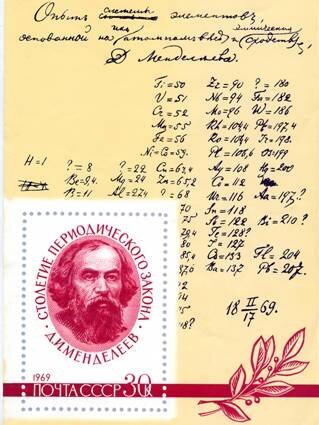 Опытъ системы элементовъ,
основанной на ихъ атомномъ весе и химическомъ сходстве.
Д. Менделеевъ.
Ti=50 Zr=90 ?=180
V=51 Nb=94 Ta=182
Cr=52 Mo=96 W=186
Mn=55 Rh=104,4 Pt=197,4
Fe=56 Ru=104,4 Ir=198.
Ni=Co=59. Pl=106,6 Os=199
H=1 ?=8 ?=22 Cu=63,4 Ag=108 Hg=200
Be=9,4. Mg=24 Zn=65,2 Cd=112
B=11 Al=27,4 ?=68 Ur=116 Au=197?
Sn=118
Bi=210?
Te=128?
I=127
Cs=133 Tl=204
Ba=137 Pb=207.
18 II/17 69.
СТОЛЕТИЕ ПЕРИОДИЧЕСКОГО ЗАКОНА
Д.И.МЕНДЕЛЕЕВ
1969
ПОЧТА СССР 30К